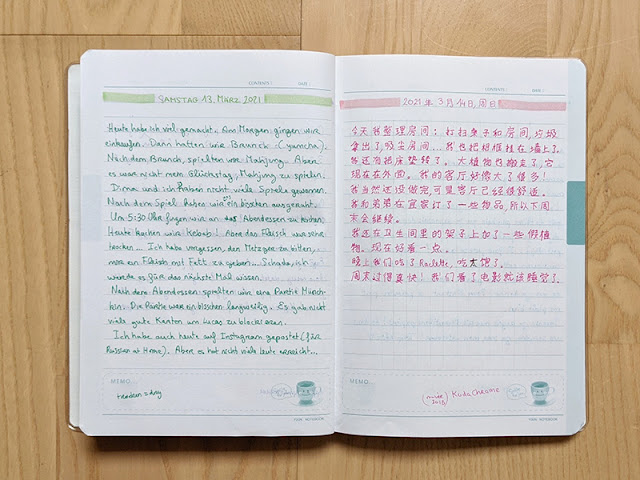 CONTENTS / DATE /
SAMSTAG 13. MÄRZ 2021
Heute habe ich viel gemacht. Am Morgen gingen wir
einkaufen. Dann hatten wir Brunch (yumcha).
Nach dem Brunch, spielten wir Mahjong. Aber
es war nicht mein Glückstag, Mahjong zu spielen.
Dima und ich haben nicht viele Spiele gewonnen.
Nach dem Spiel haben wir ein bisschen ausgeruht.
Um 5:30 Uhr fingen wir an das Abendessen zu kochen.
Heute kochen wir Kebab! Aber das Fleisch war sehr
trocken... Ich habe vergessen, den Metzger zu bitten,
mir ein Fleisch mit Fett zu geben... Schade, ich
werde es für das nächste Mal wissen.
Nach dem Abendessen spielten wir eine Partie Münch-
kin. Die Partie war ein bisschen langweilig. Es gab nicht
viele gute Karten um Lucas zu blockieren.
Ich habe auch heute auf Instagram gepostet (für
Russian at Home). Aber es hat nicht viele Leute erreicht...
MEMO
trocken = dry
YOUR NOTEBOOK
CONTENTS / DATE /
2021年3月14日,周日
今天我整理房间:打扫桌子和房间,垃圾
拿出了,吸尘房间...我也把相框挂在墙上了。
我还把床垫转了。大植物也搬走了,它
现在在外面。我的客厅好像大了很多!
我当然还没做完,可是客厅已经很舒适。
我和弟弟在宜家订了一些物品,所以下周
末会继续。
我还在卫生间里的架子上加了一些假植
物。现在好看一点。
晚上我们吃了Raclette,吃太饱了。
周末过得真快!我们看了电影就该睡觉了。
MEMO
YOUR NOTEBOOK